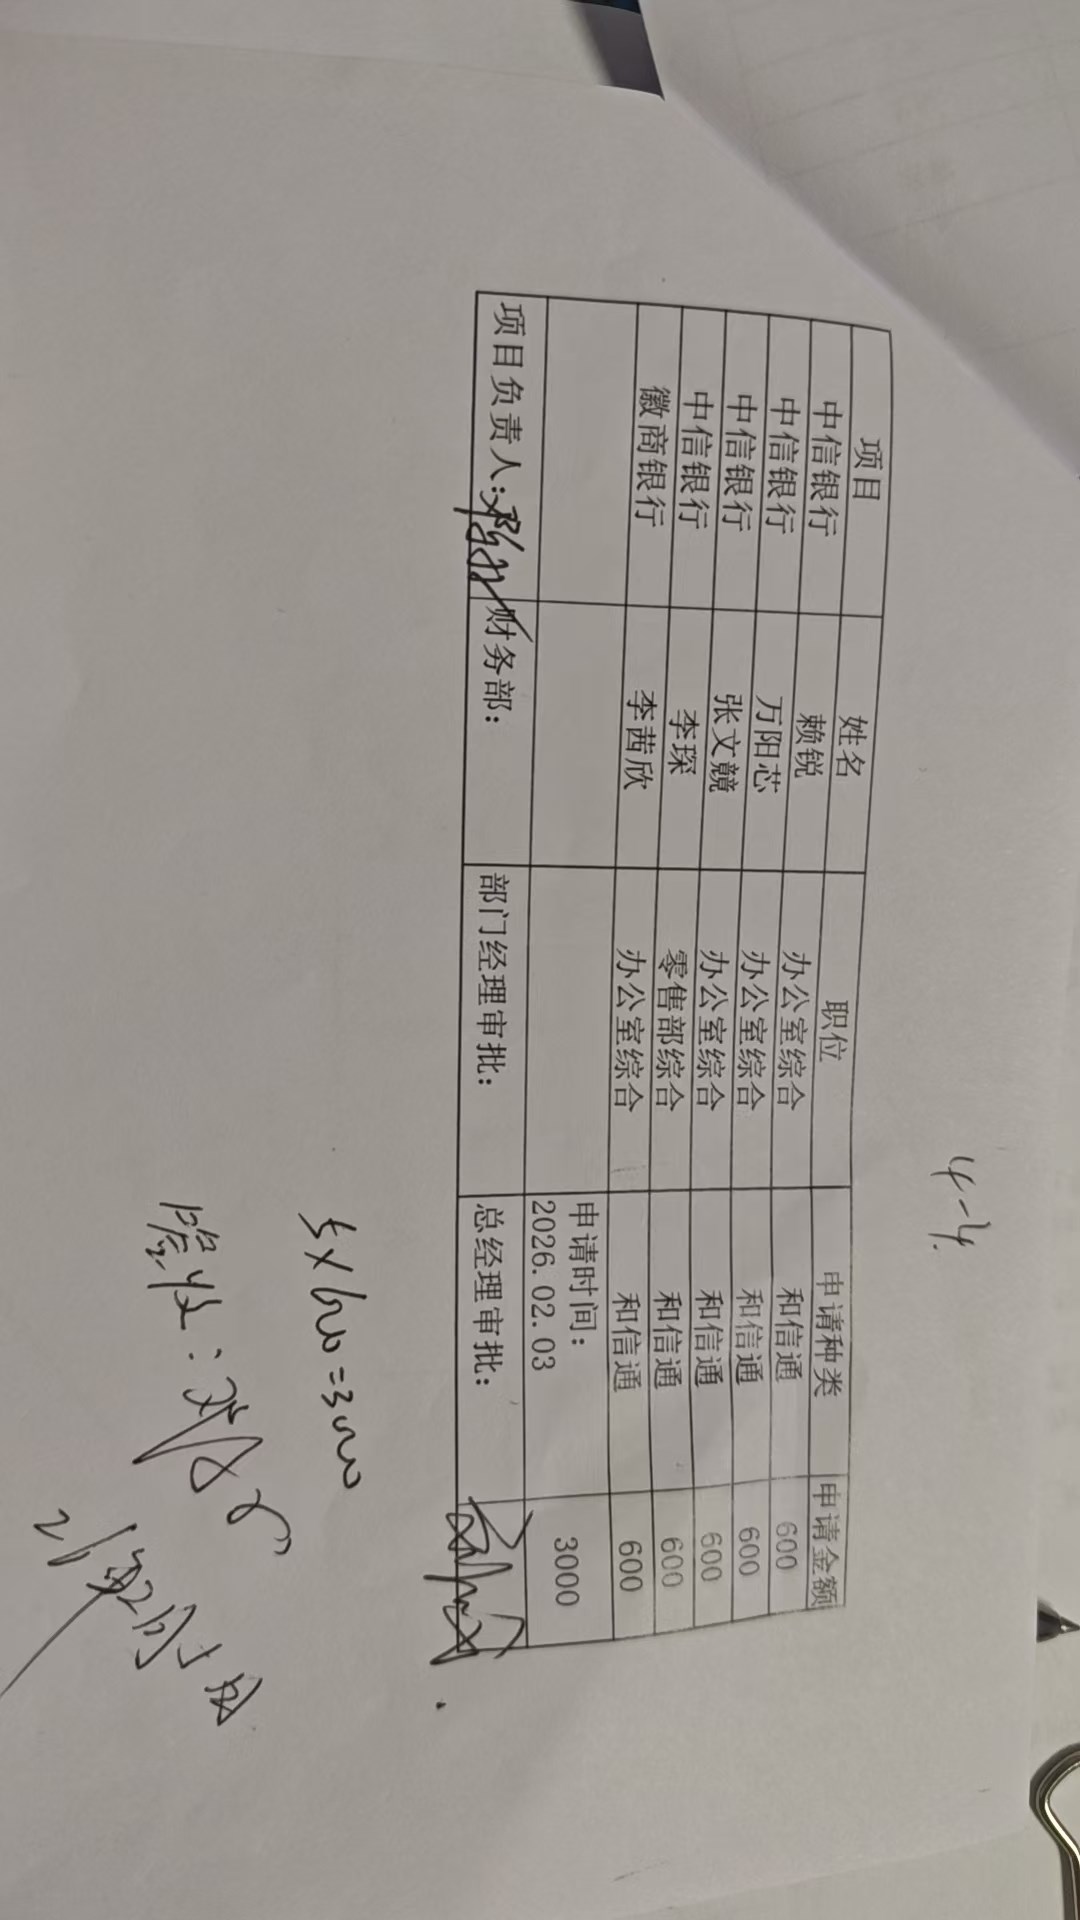 4-4.
项目 姓名 职位 申请种类 申请金额
中信银行 赖锐 办公室综合 和信通 600
中信银行 万阳芯 办公室综合 和信通 600
中信银行 张文競 办公室综合 和信通 600
中信银行 李琛 零售部综合 和信通 600
徽商银行 李茜欣 办公室综合 和信通 600
申请时间: 3000
2026.02.03
项目负责人: 财务部: 部门经理审批: 总经理审批:
5×600=3000
签收: